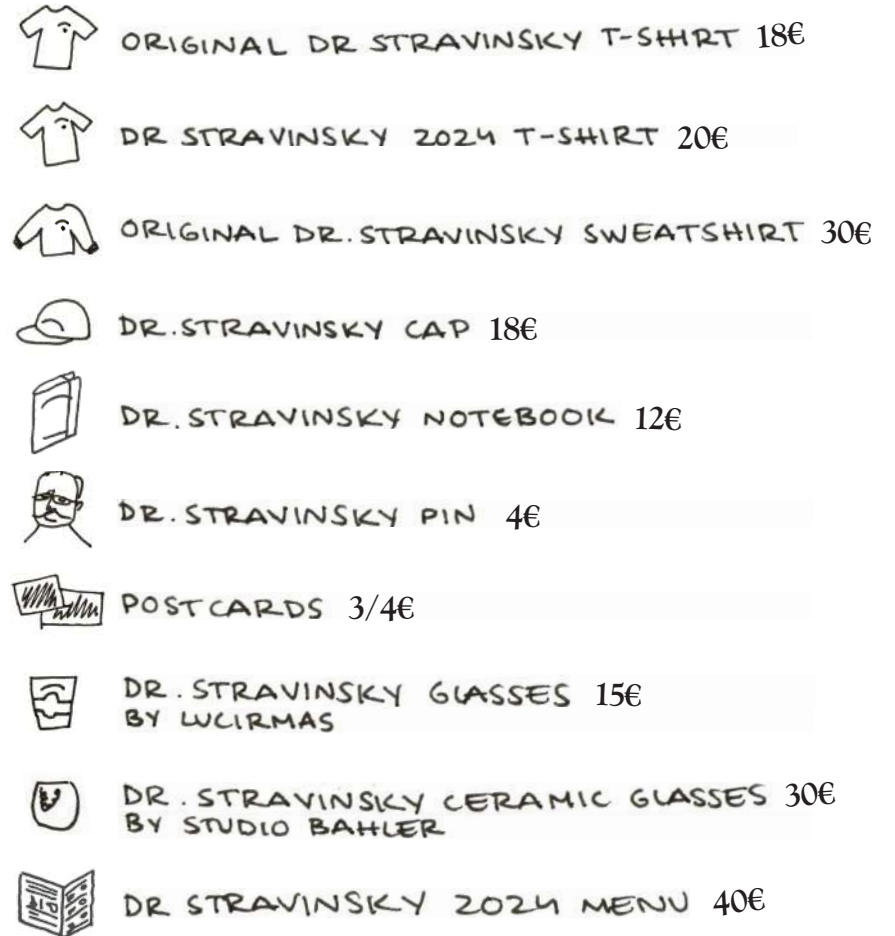 ORIGINAL DR STRAVINSKY T-SHIRT 18€
DR STRAVINSKY 2024 T-SHIRT 20€
ORIGINAL DR. STRAVINSKY SWEATSHIRT 30€
DR. STRAVINSKY CAP 18€
DR. STRAVINSKY NOTEBOOK 12€
DR. STRAVINSKY PIN 4€
POSTCARDS 3/4€
DR. STRAVINSKY GLASSES 15€
BY LUCIRMAS
DR. STRAVINSKY CERAMIC GLASSES 30€
BY STUDIO BAHLER
DR STRAVINSKY 2024 MENU 40€